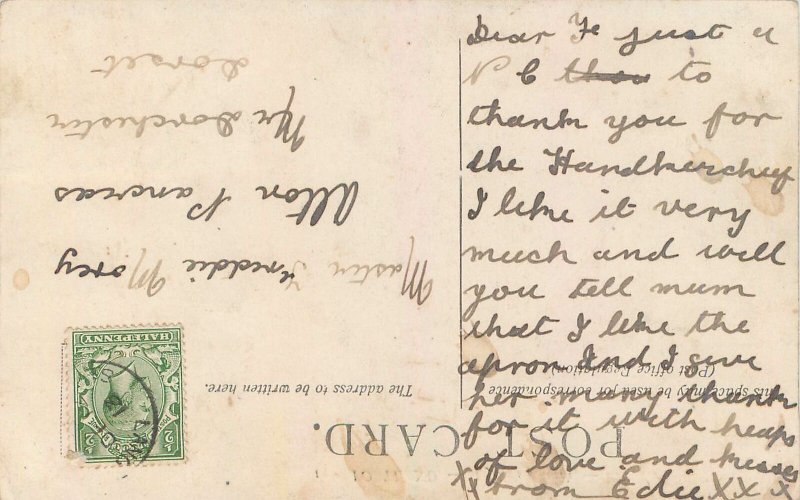 Dear Fe just a
P C thou to
thank you for
the Handkerchief
I like it very
much and will
you tell mum
that I like the
apron And I give
her many thanks
for it with heaps
of love and kisses
X from Edie X X X
POST CARD.
This space may be used for correspondence
(Post office Regulation)
The address to be written here.
Master Freddie Morey
Alton Pancras
Nr Dorchester
Dorset
HALFPENNY